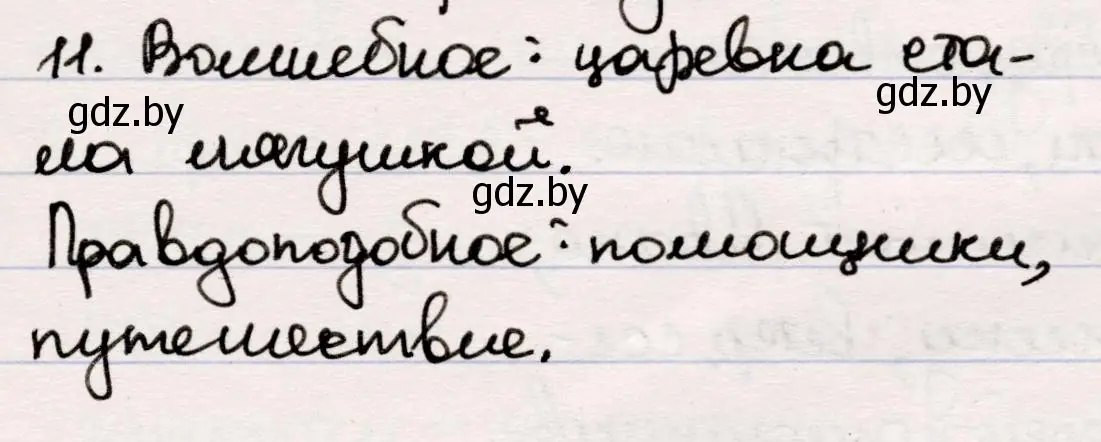 11. Волшебное: царевна ста-
gdz.by gdz.by
ла лягушкой.
gdz.by
Правдоподобное: помощники,
путешествие.